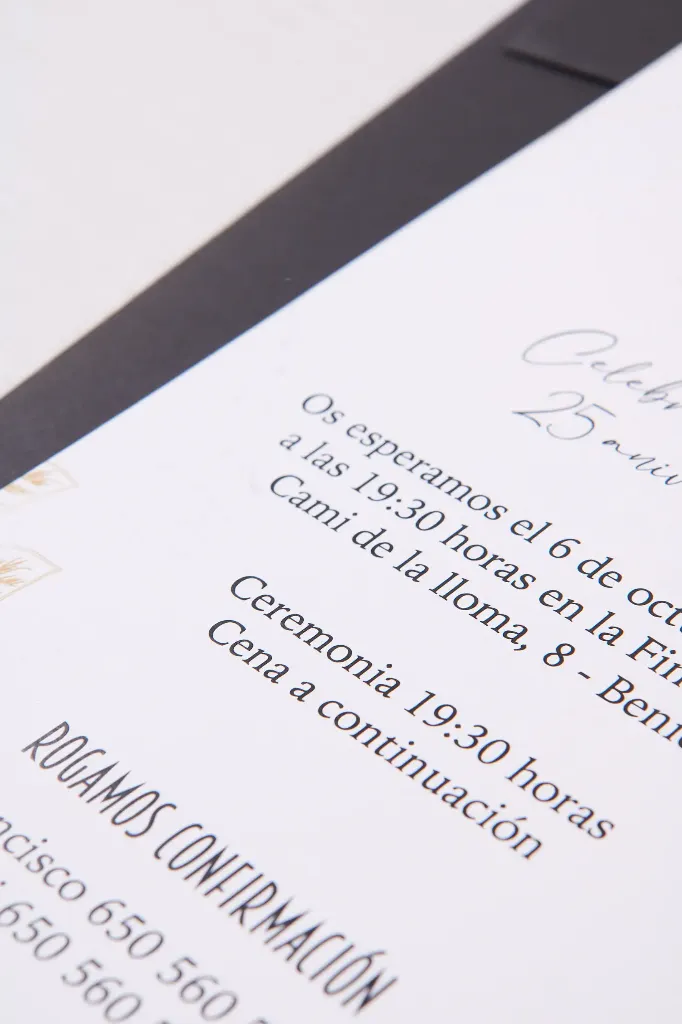 Celeb
25 aniv
Os esperamos el 6 de oct
a las 19:30 horas en la Fin
Cami de la lloma, 8 - Beni
Ceremonia 19:30 horas
Cena a continuación
ROGAMOS CONFIRMACIÓN
ncisco 650 560
650 560